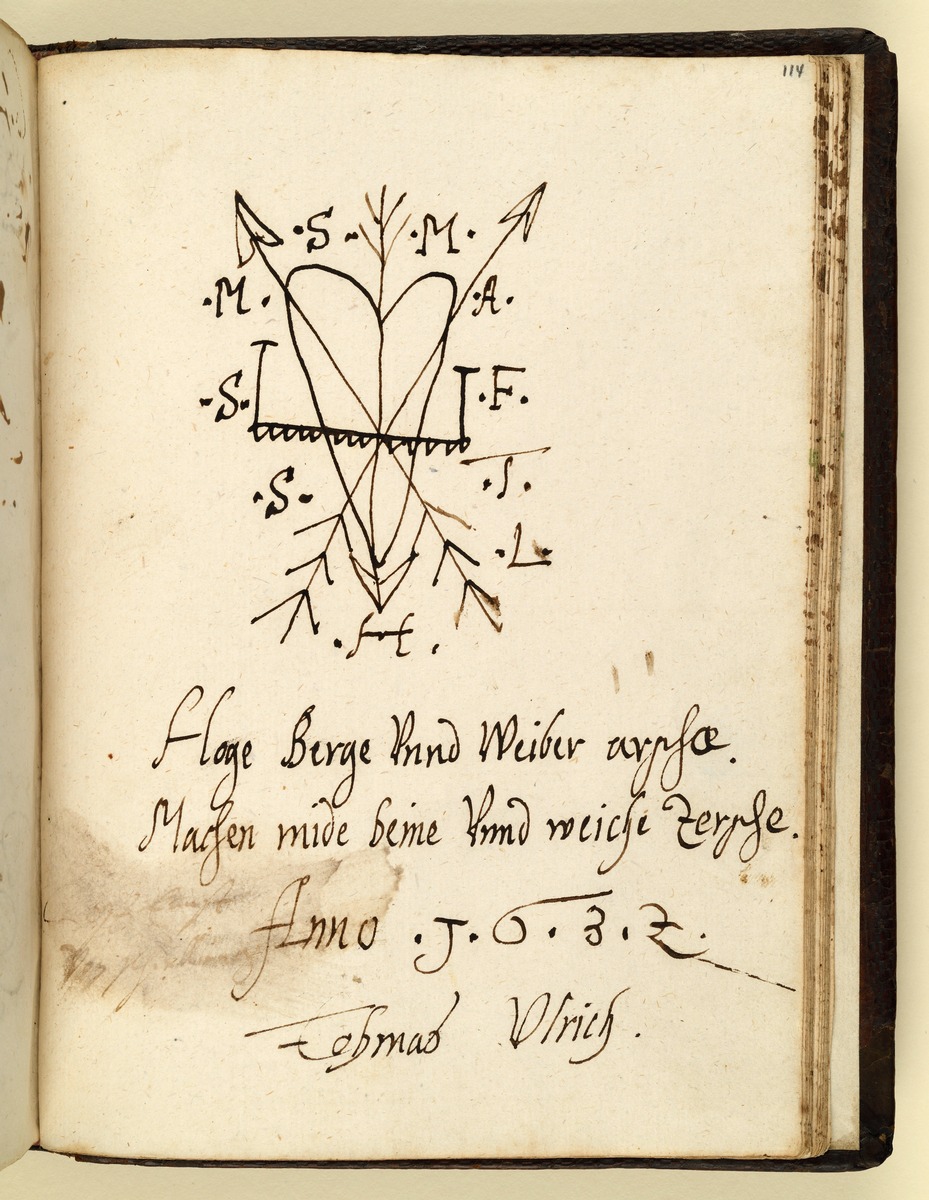 114
·S· ·M·
·M· ·A·
·S· ·F·
·S· ·T·
·L·
·H·
Hoge Berge Vnnd Weiber arsche.
Machen mide beine Vnnd weiche Zersche.
Anno ·J·6·3·Z·
Tohmas Vlrich.